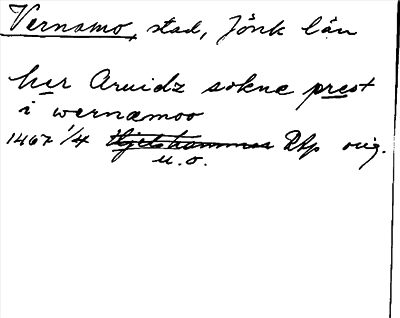 Vernamo, stad, Jönk län
her Aruidz sokne prest
i wernæmoo
1467 1/4 Hjelshammar Rtp orig.
u.o.